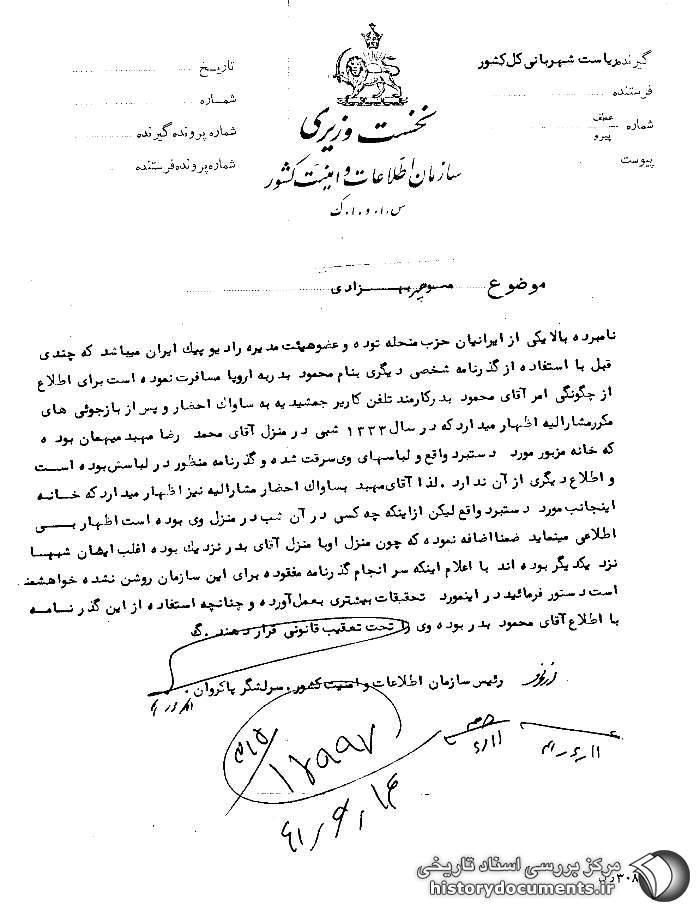 گیرنده ریاست شهربانی کل کشور
فرستنده
شماره عطف پیرو
پیوست
نخست وزیری
سازمان اطلاعات و امنیت کشور
س.ا.و.ا.ک
تاریخ
شماره
شماره پرونده گیرنده
شماره پرونده فرستنده
موضوع منوچهر بهزادی
نامبرده بالا یکی از ایرانیان حزب منحله توده و عضو هیئت مدیره رادیو پیک ایران میباشد که چندی
قبل با استفاده از گذرنامه شخص دیگری بنام محمود بدر به اروپا مسافرت نموده است برای اطلاع
از چگونگی امر آقای محمود بدر کارمند تلفن کاریر جمشیدیه به ساواک احضار و پس از بازجوئی های
مکرر مشارالیه اظهار میدارد که در سال ۱۳۳۳ شبی در منزل آقای محمد رضا مهبد میهمان بوده
که خانه مزبور مورد دستبرد واقع و لباسهای وی سرقت شده و گذرنامه منظور در لباسش بوده است
و اطلاع دیگری از آن ندارد . لذا آقای مهبد بساواک احضار مشارالیه نیز اظهار میدارد که خانه
اینجانب مورد دستبرد واقع لیکن از اینکه چه کسی در آن شب در منزل وی بوده است اظهار بی
اطلاعی مینماید ضمنا اضافه نموده که چون منزل او با منزل آقای بدر نزدیک بوده اغلب ایشان شبها
نزد یکدیگر بوده اند با اعلام اینکه سرانجام گذرنامه مفقوده برای این سازمان روشن نشده خواهشمند
است دستور فرمائید در اینمورد تحقیقات بیشتری بعمل آورده و چنانچه استفاده از این گذرنامه
با اطلاع آقای محمود بدر بوده وی را تحت تعقیب قانونی قرار دهند . گ
رئیس سازمان اطلاعات و امنیت کشور . سرلشگر پاکروان .
مرکز بررسی اسناد تاریخی
historydocuments.ir